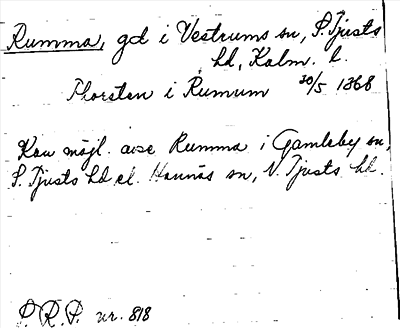 Rumma, gd i Vestrums sn, S. Tjusts
hd, Kalm. l.
Thorsten i Rumum 30/5 1368
Kan möjl. avse Rumma i Gamleby sn,
S. Tjusts hd el. Hannäs sn, N. Tjusts hd.
P. R. P. nr. 818